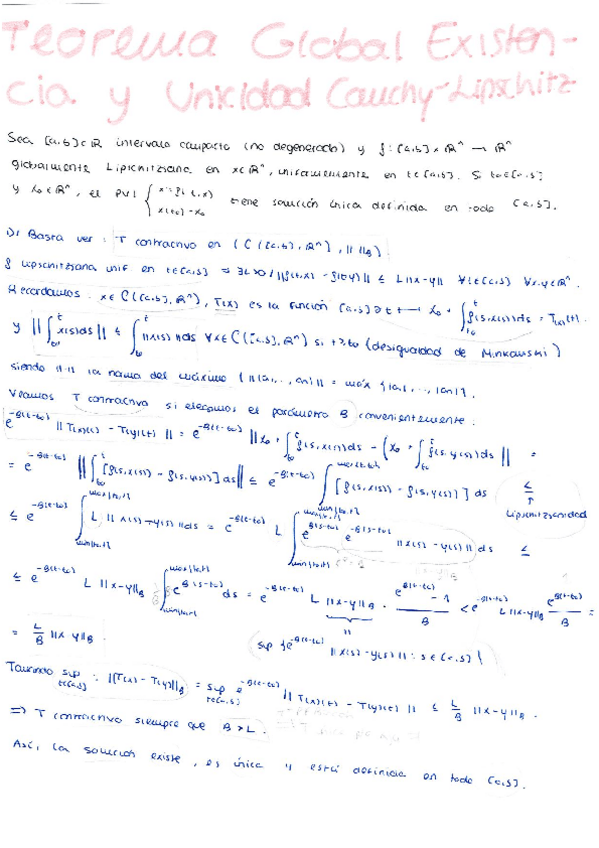 Teorema Global Existen-
cia y Unicidad Cauchy-Lipschitz
Sea [a,b]⊂ℝ intervalo compacto (no degenerado) y f:[a,b]×ℝⁿ → ℝⁿ
globalmente Lipschitziana en x∈ℝⁿ, uniformemente en t∈[a,b]. Si t₀∈[a,b]
y x₀∈ℝⁿ, el PVI { x'=f(t,x) x(t₀)=x₀ tiene solución única definida en todo [a,b].
D/ Basta ver: T contractivo en (C([a,b],ℝⁿ), || ||_B).
f Lipschitziana unif en t∈[a,b] ⇒ ∃L>0 / ||f(t,x) - f(t,y)|| ≤ L||x-y|| ∀t∈[a,b] ∀x,y∈ℝⁿ.
Recordamos: x∈C([a,b],ℝⁿ), T(x) es la función [a,b]∋t → x₀ + ∫_{t₀}^{t} f(s,x(s))ds = T(x)(t).
y ||∫_{t₀}^{t} x(s)ds|| ≤ ∫_{t₀}^{t} ||x(s)||ds ∀x∈C([a,b],ℝⁿ) si t>t₀ (desigualdad de Minkowski)
siendo ||·|| la norma del máximo (||(a₁,...,aₙ)|| = máx {|a₁|,...,|aₙ|}.
Veamos T contractivo si elegimos el parámetro B convenientemente:
e^{-B(t-t₀)} ||T(x)(t) - T(y)(t)|| = e^{-B(t-t₀)} ||x₀ + ∫_{t₀}^{t} f(s,x(s))ds - (x₀ + ∫_{t₀}^{t} f(s,y(s))ds)|| =
= e^{-B(t-t₀)} ||∫_{t₀}^{t} [f(s,x(s)) - f(s,y(s))]ds|| ≤ e^{-B(t-t₀)} ∫_{min{t₀,t}}^{max{t₀,t}} [f(s,x(s)) - f(s,y(s))] ds ≤
Lipschitzianidad
≤ e^{-B(t-t₀)} ∫_{min{t₀,t}}^{max{t₀,t}} L ||x(s)-y(s)||ds = e^{-B(t-t₀)} L ∫_{min{t₀,t}}^{max{t₀,t}} e^{B(s-t₀)} e^{-B(s-t₀)} ||x(s)-y(s)|| ds ≤
≤ e^{-B(t-t₀)} L ||x-y||_B ∫_{min{t₀,t}}^{max{t₀,t}} e^{B(s-t₀)} ds = e^{-B(t-t₀)} L ||x-y||_B · (e^{B(t-t₀)} - 1)/B < e^{-B(t-t₀)} L||x-y||_B e^{B(t-t₀)}/B =
= L/B ||x-y||_B.
sup {e^{-B(s-t₀)} ||x(s)-y(s)|| : s∈[a,b]}
Tomando sup_{t∈[a,b]} : ||T(x) - T(y)||_B = sup_{t∈[a,b]} e^{-B(t-t₀)} ||T(x)(t) - T(y)(t)|| ≤ L/B ||x-y||_B.
⇒ T contractivo siempre que B>L.
Así, la solución existe, es única y está definida en todo [a,b].